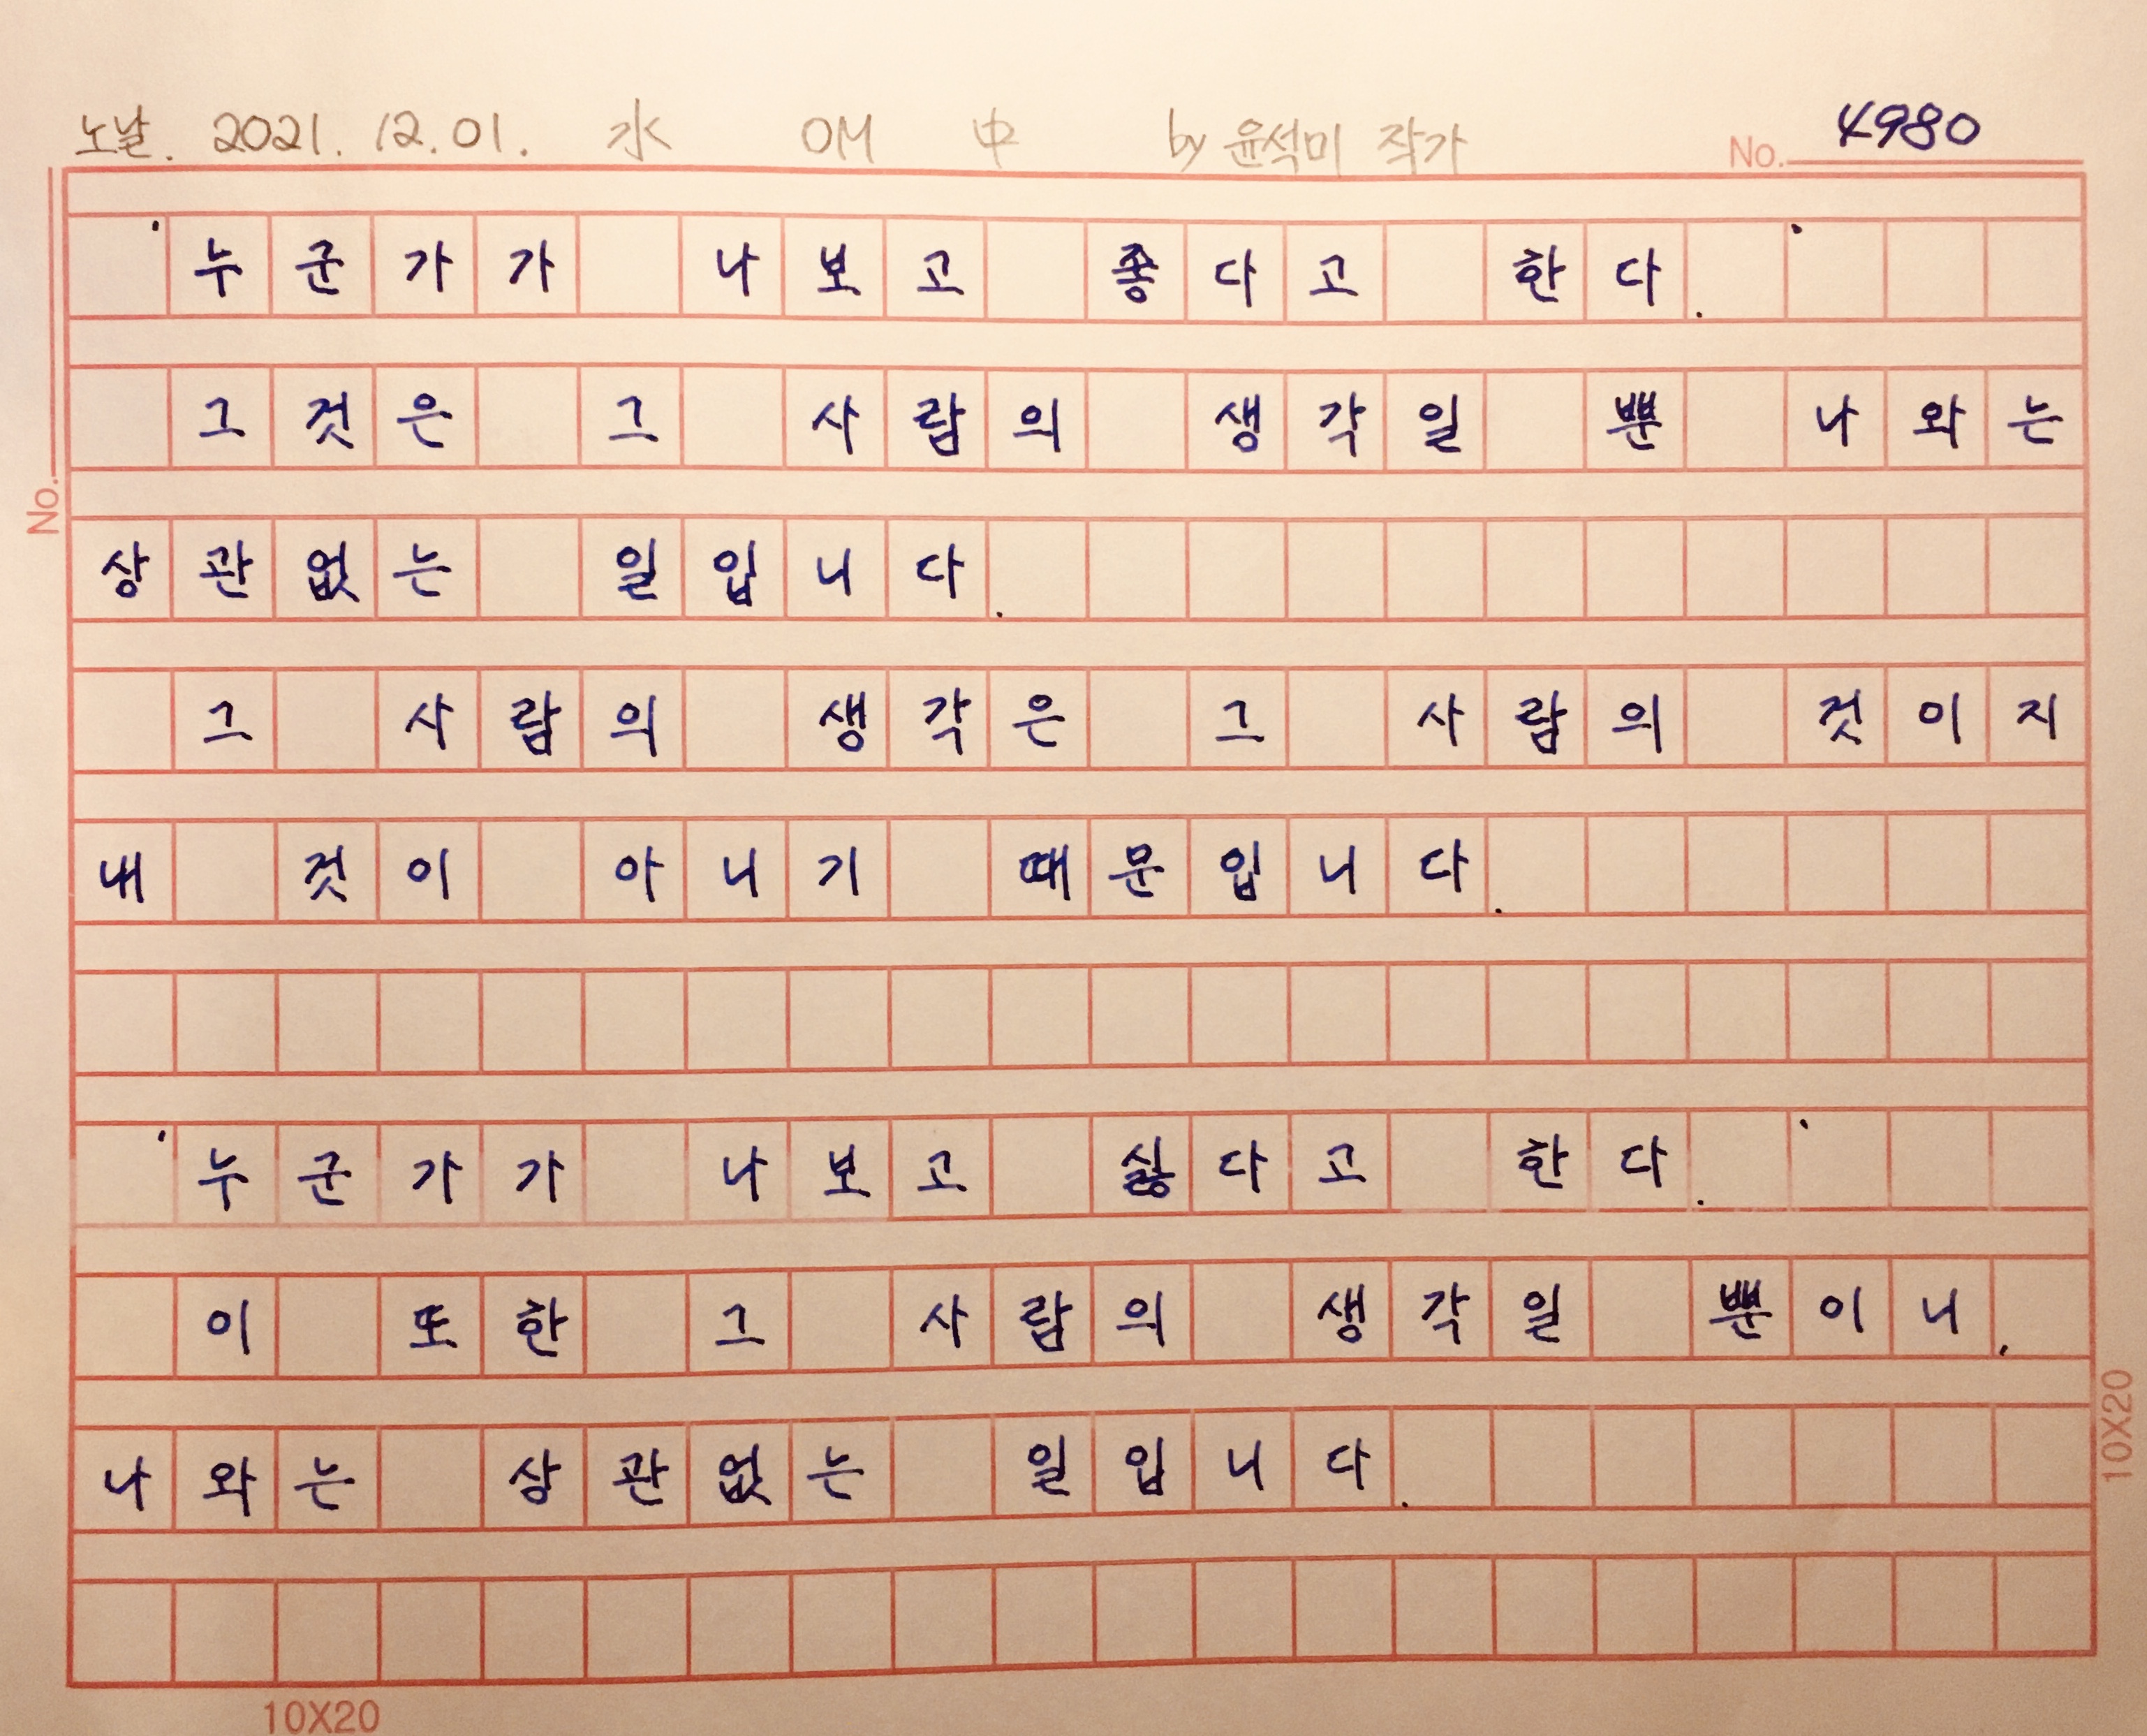 노날. 2021. 12. 01. 水 OM 中 by 윤석미 작가 No. 4980
'누군가가 나보고 좋다고 한다.'
그것은 그 사람의 생각일 뿐 나와는
상관없는 일입니다.
그 사람의 생각은 그 사람의 것이지
내 것이 아니기 때문입니다.
'누군가가 나보고 싫다고 한다.'
이 또한 그 사람의 생각일 뿐이니,
나와는 상관없는 일입니다.
No.
10X20
10X20